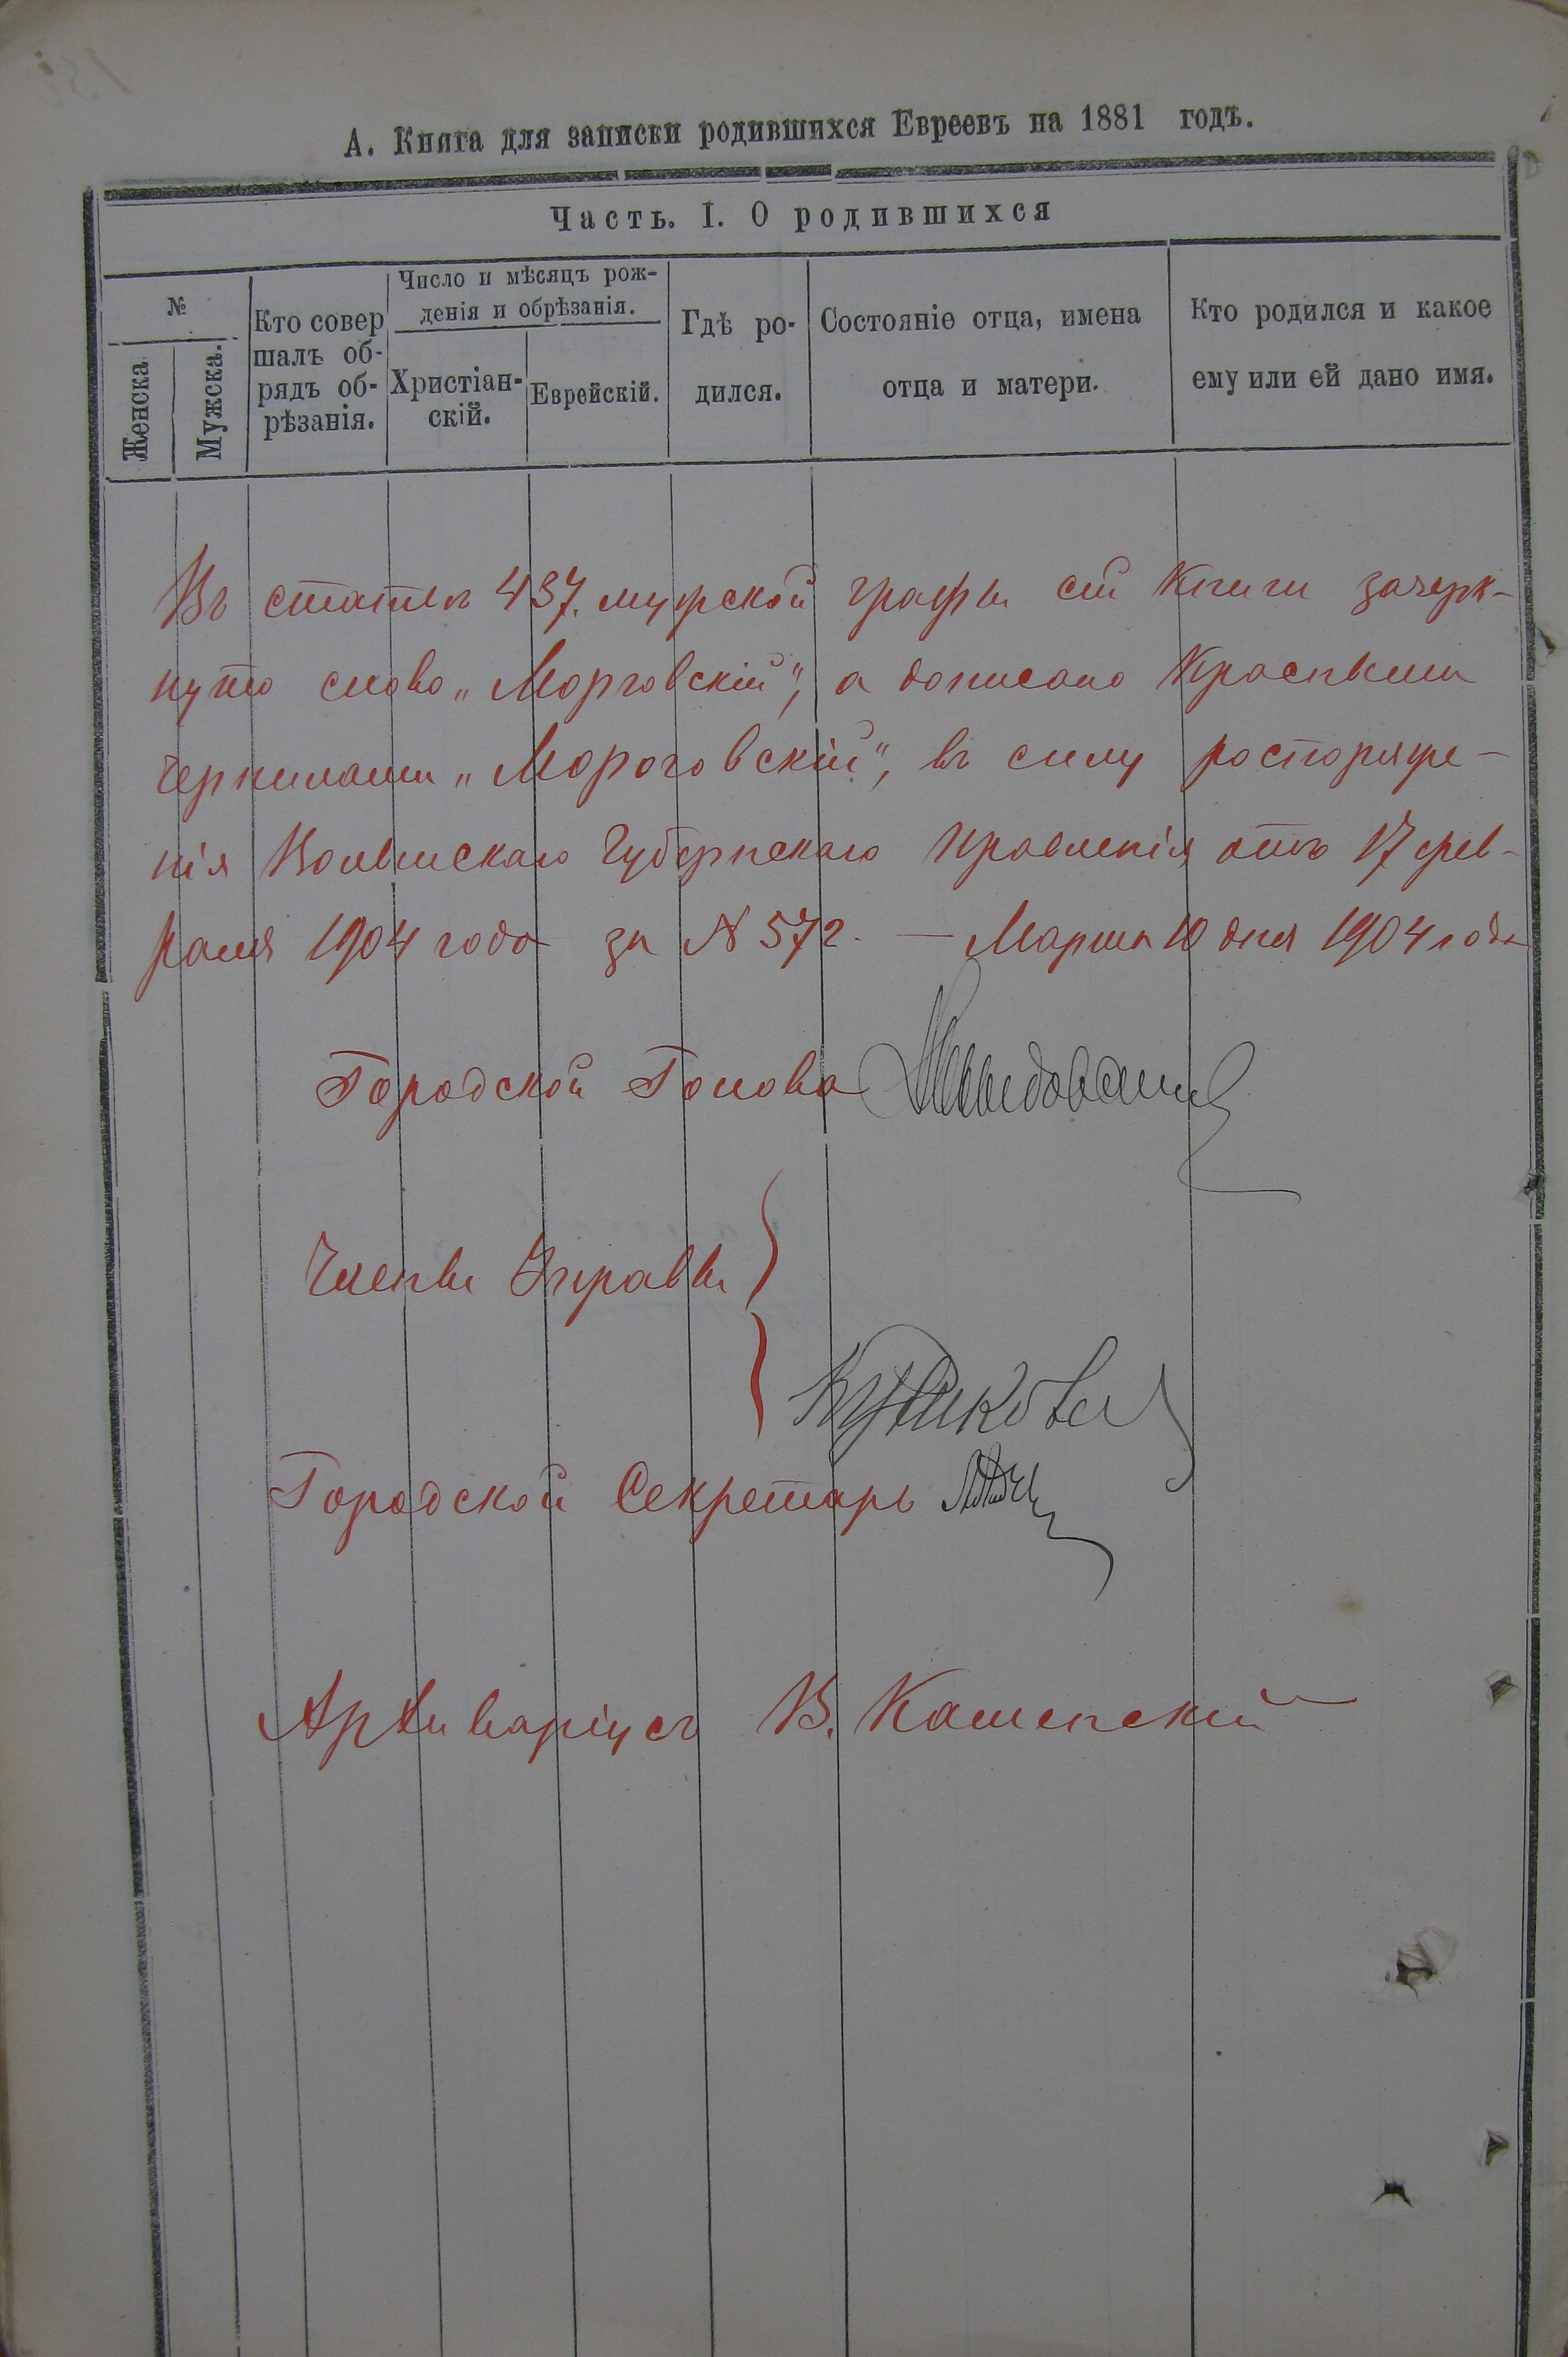 А. Книга для записки родившихся Евреевъ на 1881 годъ.
Часть. I. О родившихся
№
Женска
Мужска.
Кто совер
шалъ об-
рядъ об-
рѣзанія.
Число и мѣсяцъ рож-
денія и обрѣзанія.
Христіан-
скій.
Еврейскій.
Гдѣ ро-
дился.
Состояніе отца, имена
отца и матери.
Кто родился и какое
ему или ей дано имя.
Въ статьѣ 437. мужской графы сей Книги зачерк-
нуто слово „Морговскій", а дописано Красными
чернилами „Мороговскій", въ силу распоряже-
нія Волынскаго Губернскаго Правленія отъ 17 фев-
раля 1904 года за № 572. — Марта 10 дня 1904 года
Городской Голова
Члены Управы
Городской Секретарь
Архиваріусъ В. Каменскій